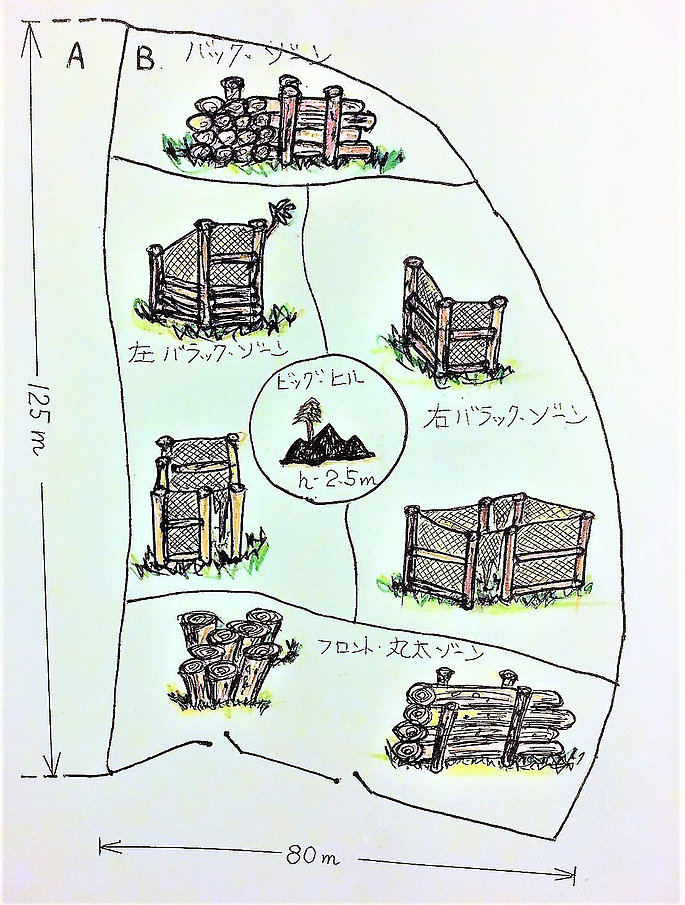 A
B
バック・ゾーン
左バラック・ゾーン
ビッグ・ヒル
h-2.5m
右バラック・ゾーン
125m
フロント・丸太・ゾーン
80m